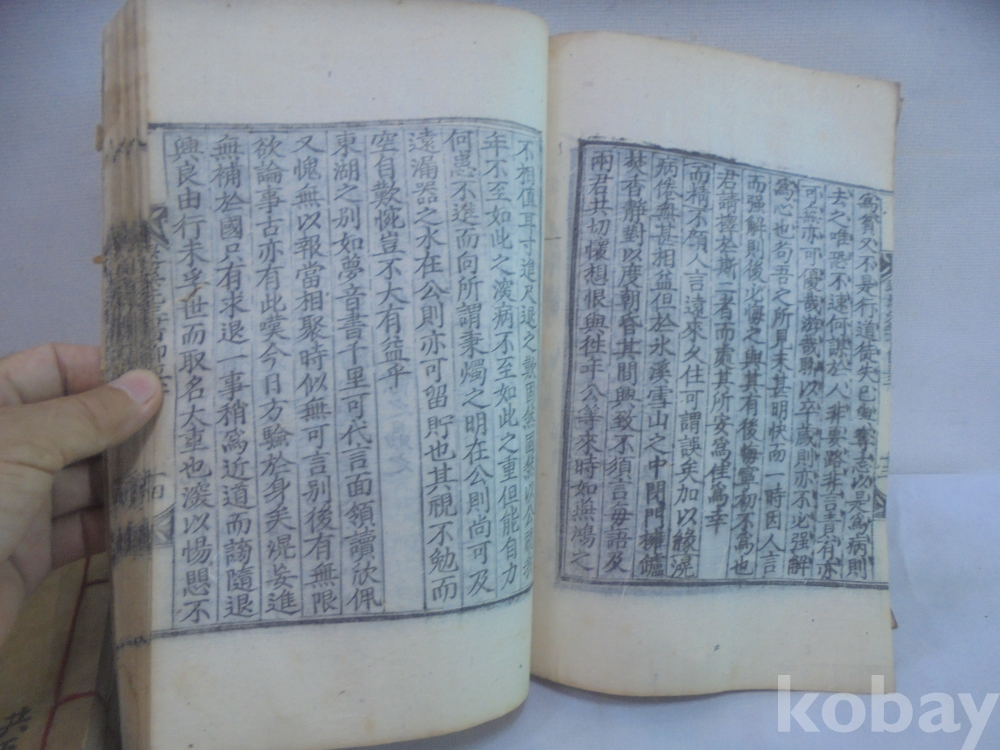 為貧又不是行道徒失己
去之唯恐不速何謀於人
為心也苟吾之所見未甚明快而一時因人言
而强解則後必悔之與其有後悔寧初不為也
君請擇於斯二者而處其所安為佳為幸
而稱不願人言遠來久住可謂誤矣加以緣
病倦無甚相益但於氷溪雪山之中閉門擁爐
焚香靜對以度朝昏其間興致不須言毋語及
兩君共切懷想恨與往年公等來時如撫鴻之
不相值耳寸進尺退之歎固然
年不至如此之深病不至如此之重但能自力
何患不進而向所謂秉燭之明在公則尚可及
遠漏器之水在公則亦可留貯也其視不勉而
空自歎慨豈不大有益乎
東湖之別如夢音書千里可代言面領讀欣佩
又愧無以報當相聚時似無可言別後有無限
欲論事古亦有此嘆今日方驗於身矣混妄進
無補於國只有求退一事稍為近道而蒭隨退
興良由行未孚世而取名大重也深以惕恧不
十四
kobay